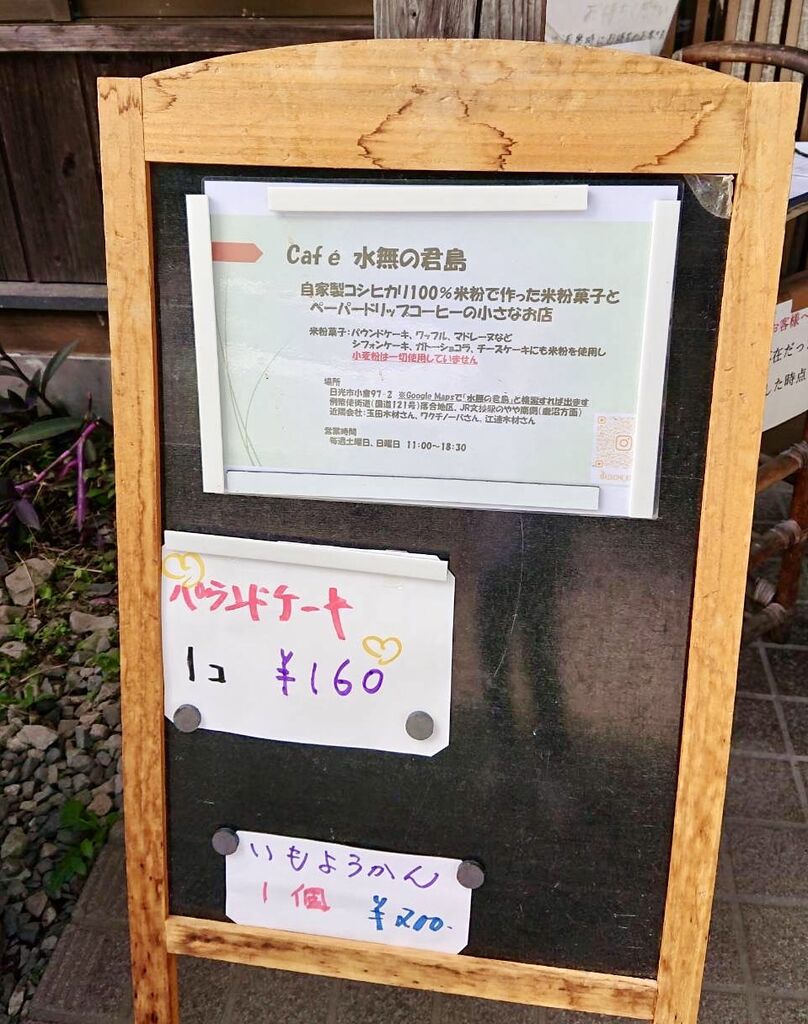 Café 水無の君島
自家製コシヒカリ100%米粉で作った米粉菓子と
ペーパードリップコーヒーの小さなお店
米粉菓子:パウンドケーキ、ワッフル、マドレーヌなど
シフォンケーキ、ガトーショコラ、チーズケーキにも米粉を使用し
小麦粉は一切使用していません
場所
日光市小倉97-2 ※Google Mapsで「水無の君島」と検索すれば出ます
例幣使街道(国道121号)落合地区、JR文挾駅のやや南側(鹿沼方面)
近隣会社:玉田木材さん、ワクチノーバさん、江連木材さん
営業時間
毎週土曜日、日曜日 11:00～18:30
パウンドケーキ
1コ ¥160
いもようかん
1個 ¥200.
お客様へ
した時点